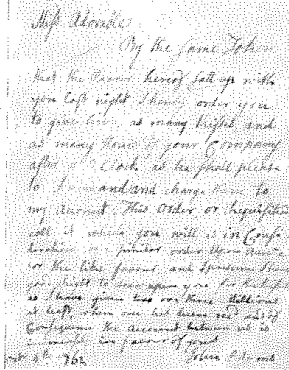 Miss Adorable
By the same Token
that the Bearer hereof satt up with
you last night I hereby order you
to give him, as many Kisses, and
as many Hours of your Company
after 9 o'Clock as he shall please
to Demand and charge them to
my Account. This Order, or Requisition
call it which you will is in Consi-
deration of a similar order Upon
for the like favour, and I presume I have
good Right to draw upon you for the
as I have given two or three Millions
at least, when one has been received of
Consequence the Account between us is
immensely in favour of yours
4th 1762 John Adams